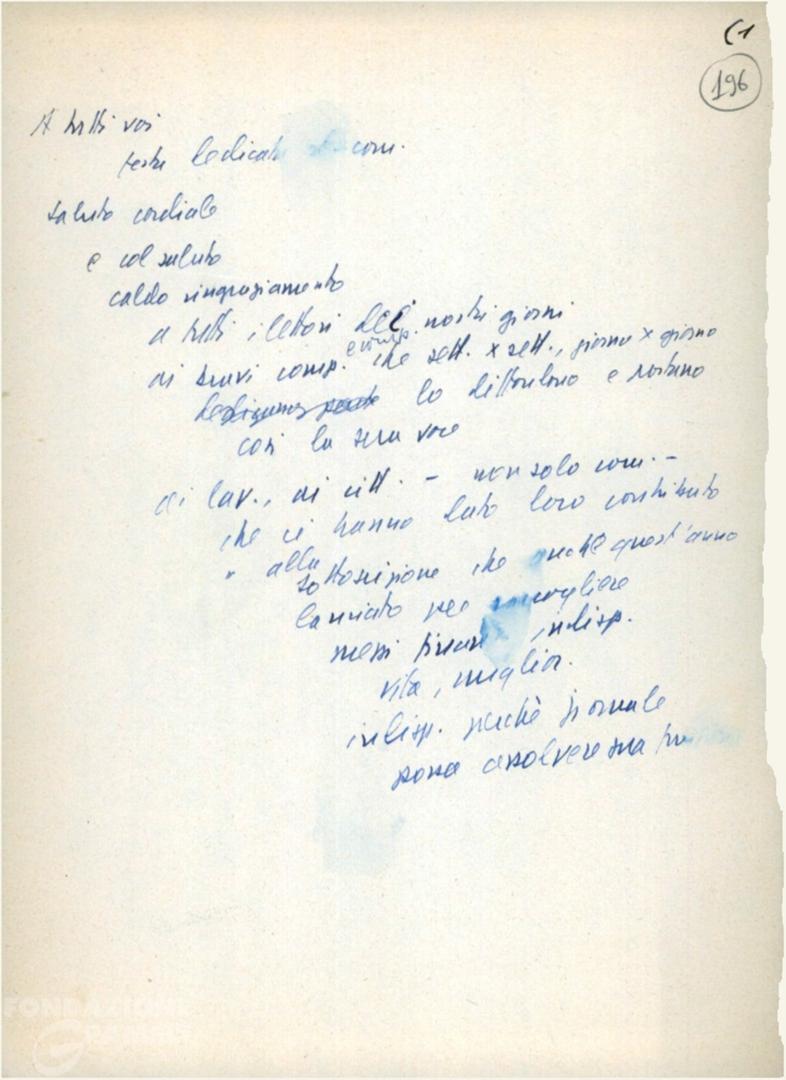 (1
196
A tutti voi
festa dedicata st. com.
saluto cordiale
e col saluto
caldo ringraziamento
a tutti i lettori dei nostri giorni
ai bravi comp. e comp. che sett. x sett., giorno x giorno
lo diffondono e portano
così la sua voce
ai lav., ai citt. - non solo com. -
che ci hanno dato loro contributo
" alla
sottoscrizione che anche quest'anno
lanciato per raccogliere
mezzi finanz. indisp.
vita, miglior.
indisp. perchè giornale
possa assolvere sua
FONDAZIONE
GRAMSCI